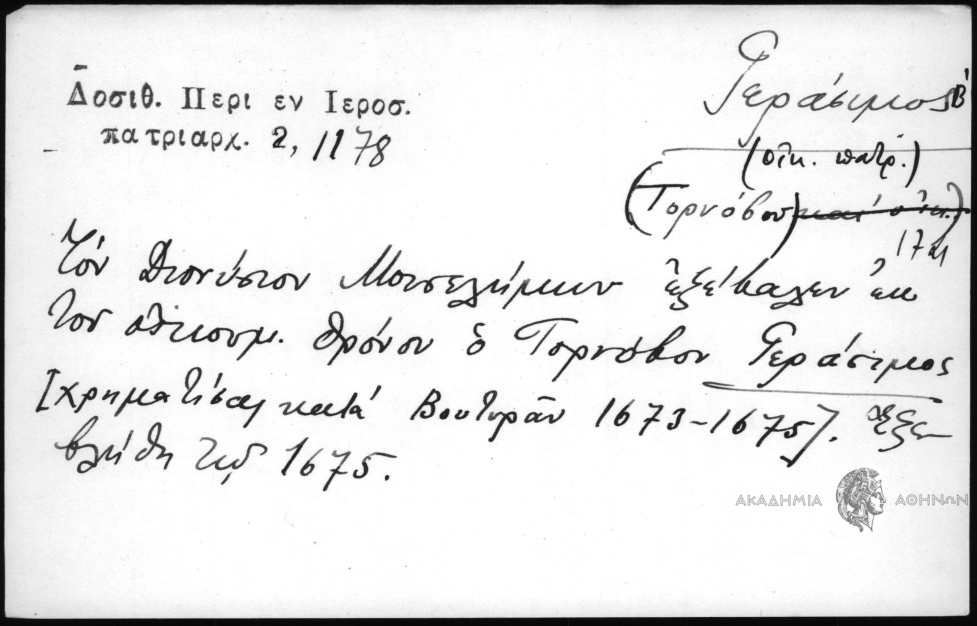 Δοσιθ. Περι εν Ιεροσ.
πατριαρχ. 2, 1178
Γεράσιμος Β´
(οἰκ. πατρ.)
(Τορνόβου) καί οἰκ.)
Τόν Διονύσιον Μουσελίμην ἐξέβαλεν ἐκ
τοῦ οἰκουμ. θρόνου ὁ Τορνόβου Γεράσιμος
[χρηματίσας κατά Βουτυρᾶν 1673-1675]. Ἐξε-
βλήθη τῷ 1675.
ΑΚΑΔΗΜΙΑ ΑΘΗΝΩΝ